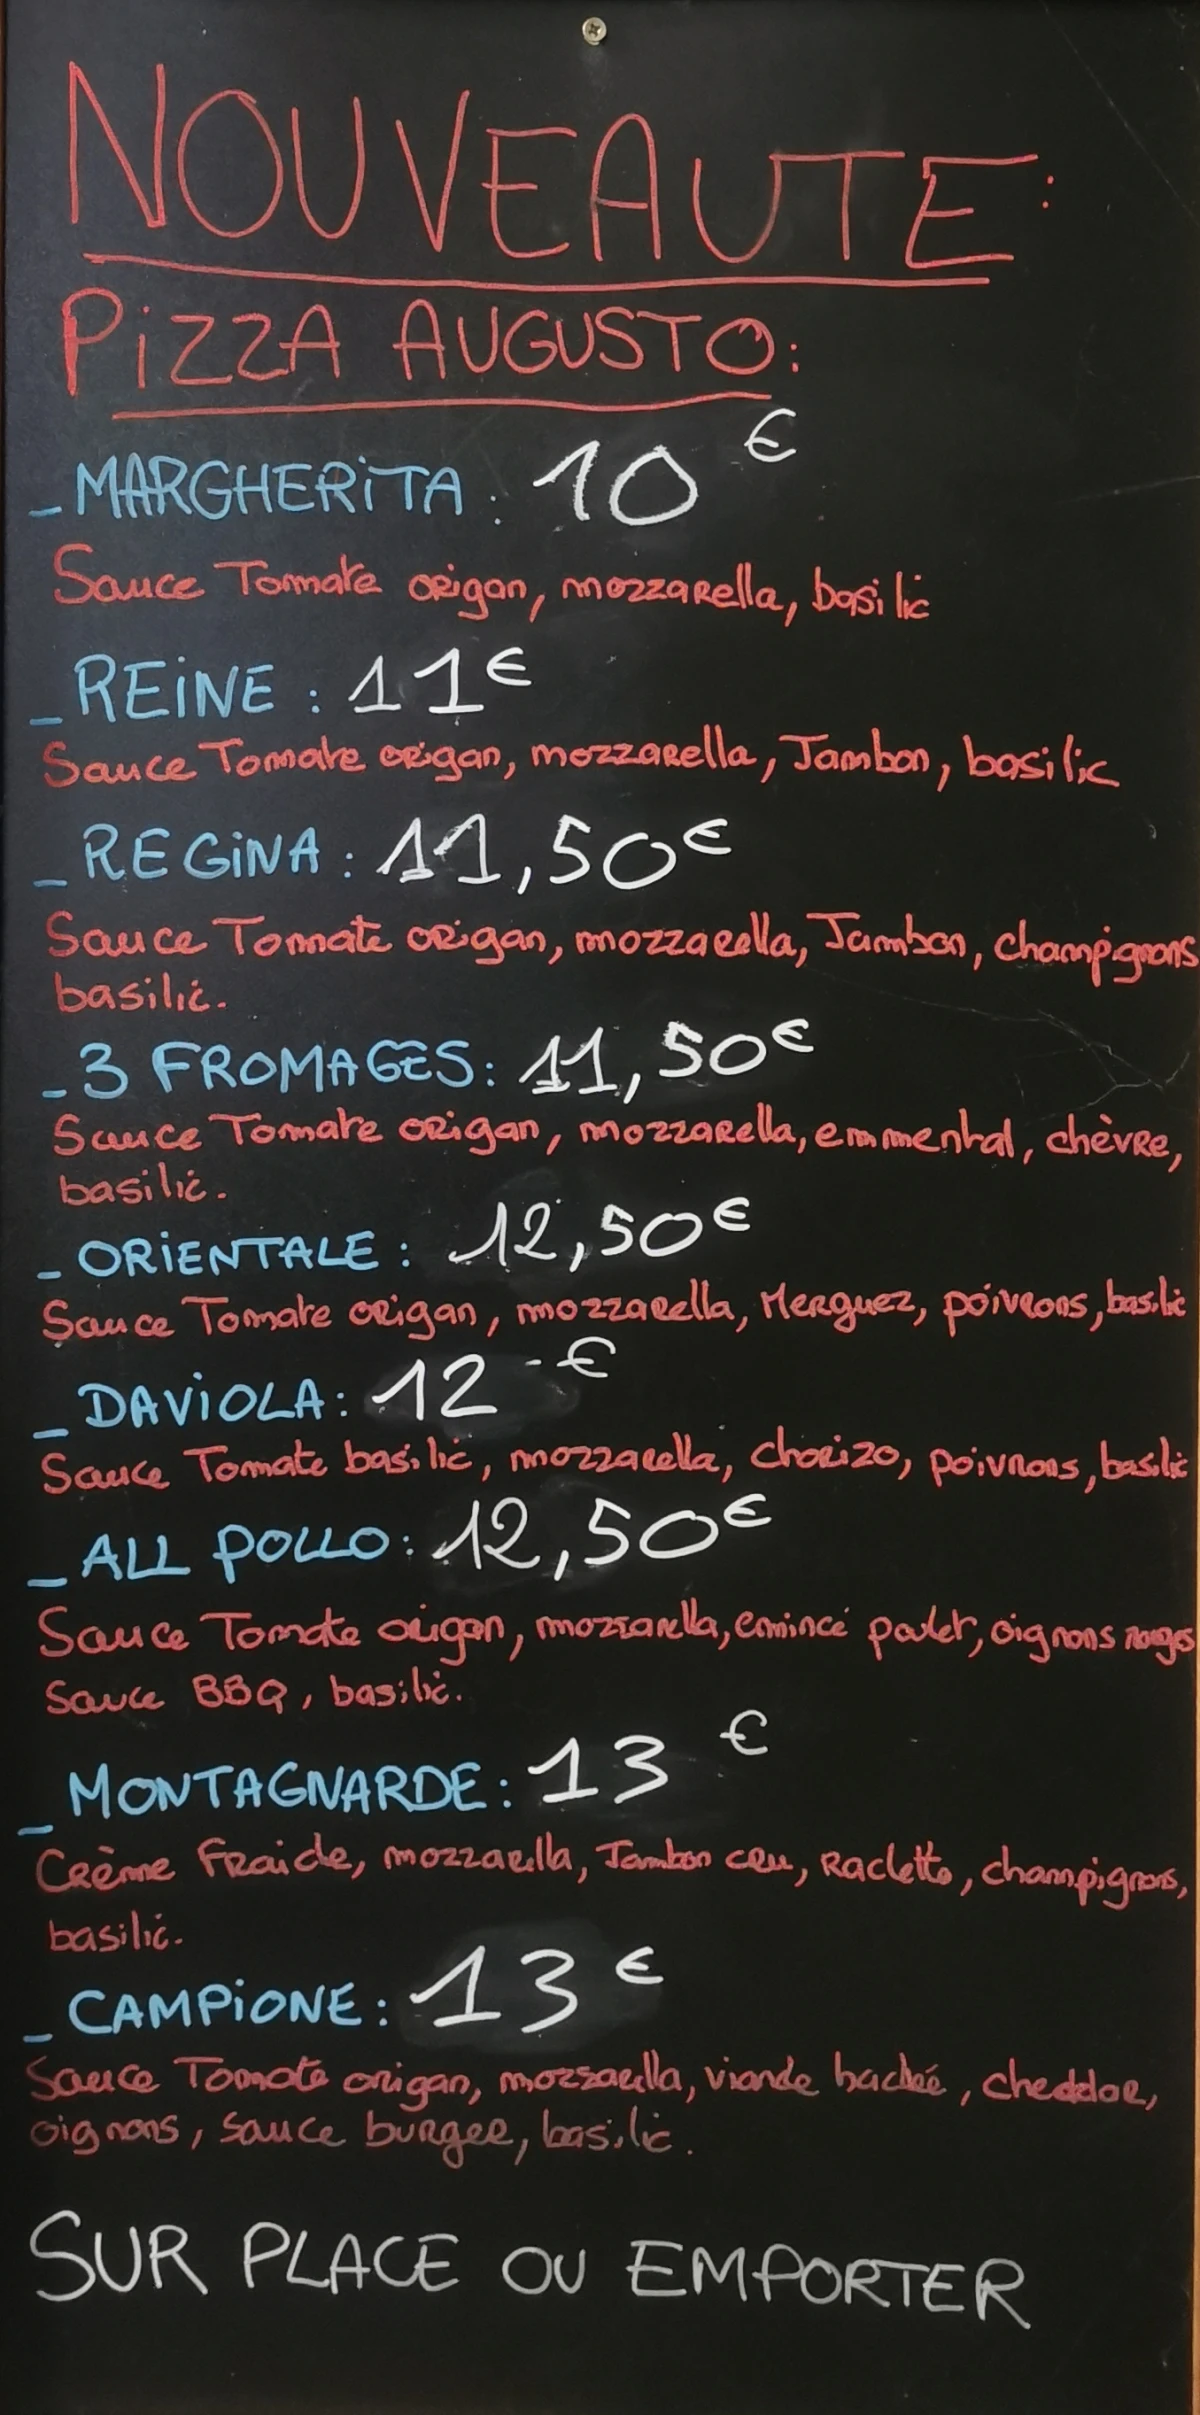 NOUVEAUTE :
PiZZA AUGUSTO :
_ MARGHERiTA : 10 €
Sauce Tomate origan, mozzarella, basilic
_ REiNE : 11€
Sauce Tomate origan, mozzarella, Jambon, basilic
_ REGiNA : 11,50€
Sauce Tomate origan, mozzarella, Jambon, champignons
basilic.
_ 3 FROMAGES : 11,50€
Sauce Tomate origan, mozzarella, emmental, chèvre,
basilic.
_ ORiENTALE : 12,50€
Sauce Tomate origan, mozzarella, Merguez, poivrons, basilic
_ DAViOLA : 12 - €
Sauce Tomate basilic, mozzarella, chorizo, poivrons, basilic
_ ALL POLLO : 12,50€
Sauce Tomate origan, mozzarella, émincé poulet, oignons rouges
Sauce BBQ, basilic.
_ MONTAGNARDE : 13 €
Crème Fraiche, mozzarella, Jambon cru, Raclette, champignons,
basilic.
_ CAMPiONE : 13 €
Sauce Tomate origan, mozzarella, viande hachée, cheddar,
oignons, sauce burger, basilic.
SUR PLACE OU EMPORTER